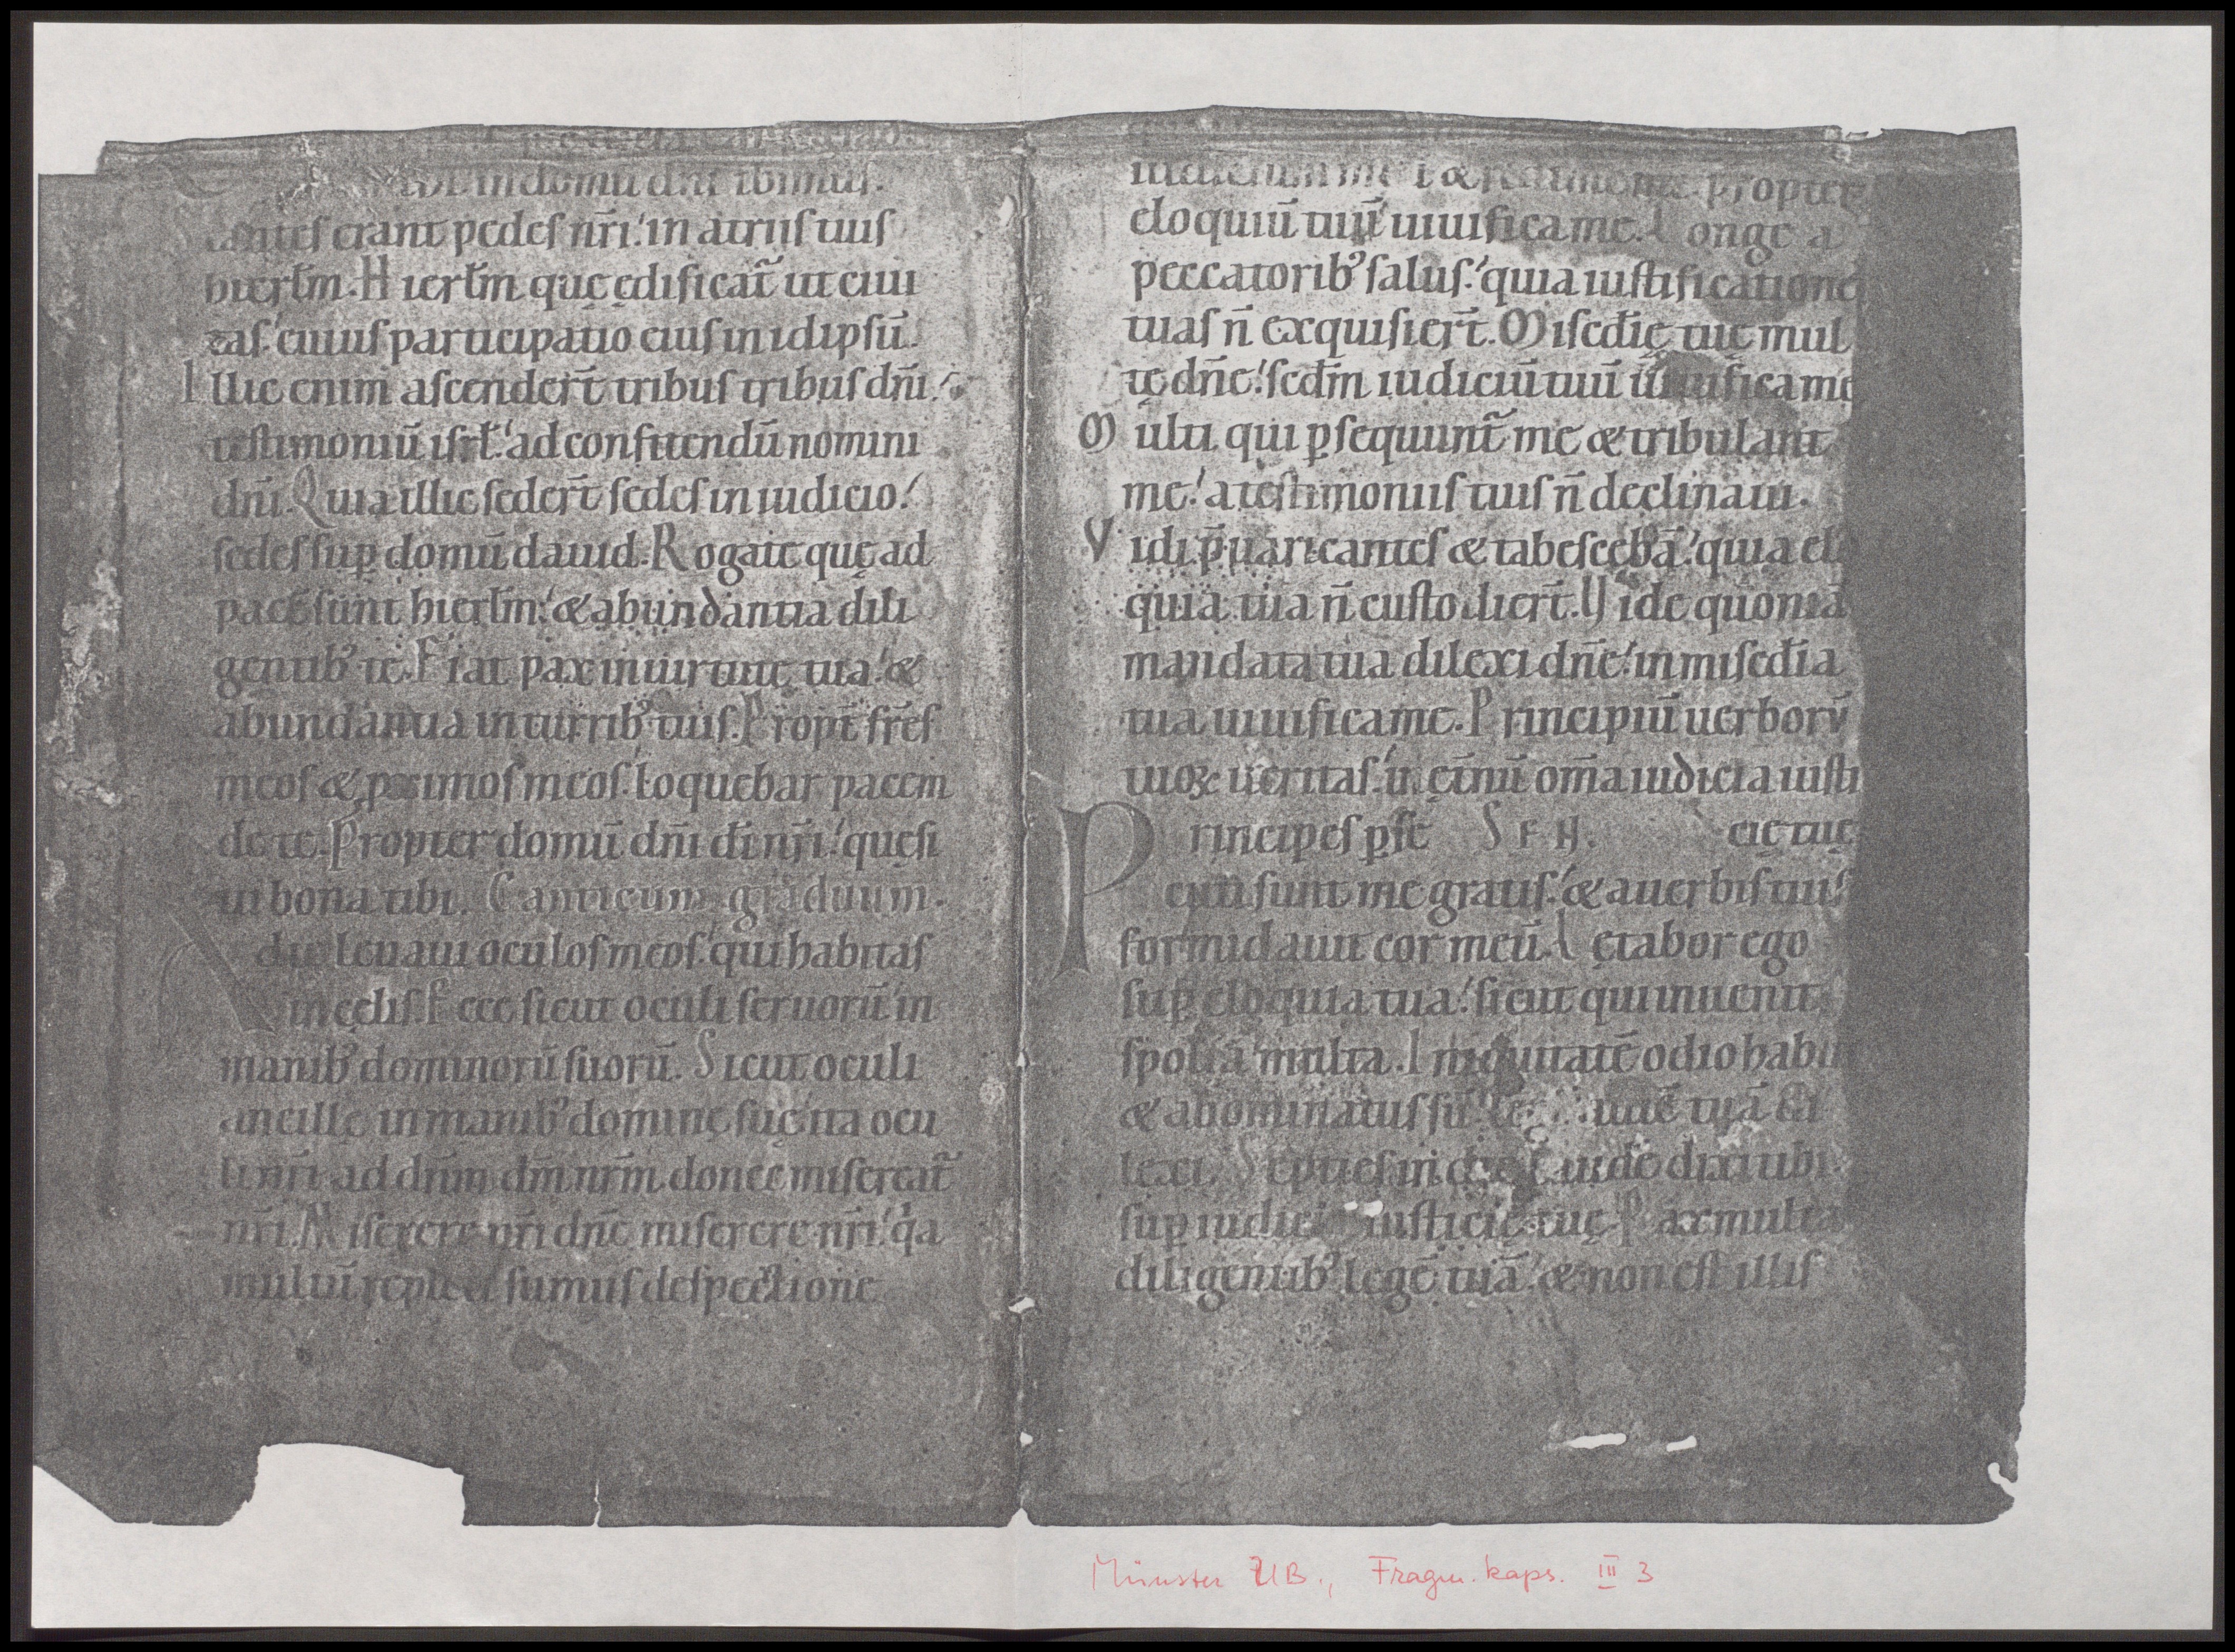 in domu dn̄i ibimus.
erant pedes nr̄i! in atriis tuis
hierłm. Hierłm quę ędificat̃ ut ciui
tas! cuius participatio eius in idipsū.
Illic enim ascender̄t tribus tribus dn̄i!
testimoniū isrł! ad confitendū nomini
dn̄i. Quia illic seder̄t sedes in iudicio!
sedes sup̱ domū dauid. Rogate quę ad
pacē sunt hierłm! & abundantia dili
gentib᾽ te. Fiat pax in uirtute tua! &
abundantia in turrib᾽ tuis. Propt̄ fr̄es
meos & p̱ximos meos! loquebar pacem
de te. Propter domū dn̄i dī nr̄i! quęsi
ui bona tibi. Canticum graduum.
d te leuaui oculos meos! qui habitas
in cęlis. Ecce sicut oculi seruorū! in
manib᾽ dominorū suorū. Sicut oculi
ancillę in manib᾽ dominę suę! ita ocu
li nr̄i ad dn̄m dm̄ nr̄m donec misereat̃
nr̄i. Miserere nr̄i dn̄e miserere nr̄i! qa
multū repleti sumus despectione
propter
eloquiū tuū! uiuifica me. Longe a
peccatorib᾽ salus! quia iustificatione
tuas n̄ exquisier̄t. Misedīę tuę mul
tę dn̄e! scdm̄ iudiciū tuū uiuifica me
Multi qui p̱sequunt̃ me & tribulant
me! a testimoniis tuis n̄ declinaui.
Vidi p̄uaricantes & tabescebā! quia el
quia tua n̄ custodier̄t. Vide quoniā
mandata tua dilexi dn̄e! in misedīa
tua uiuifica me. Principiū uerborū
tuoꝝ ueritas! in ęt̄nū om̄a iudicia iusti
Principes p̱se SFH. cię tuę
cuti sunt me gratis! & a uerbis tuis
formidauit cor meū. Lętabor ego
sup̱ eloquia tua! sicut qui inuenit
spolia multa. Iniquitatē odio habu
& abominatus sū! tuā
lexi. Septies in die laudē dixi tibi
sup̱ iudici iusticię tuę. Pax multa
diligentib᾽ legē tuā! & non est illis
Münster UB., Fragm. kaps. III 3